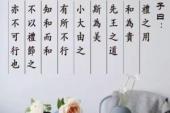 子曰：
禮之用
和為貴
先王之道
斯為美
小大由之
有所不行
知和而和
不以禮節之
亦不可行也